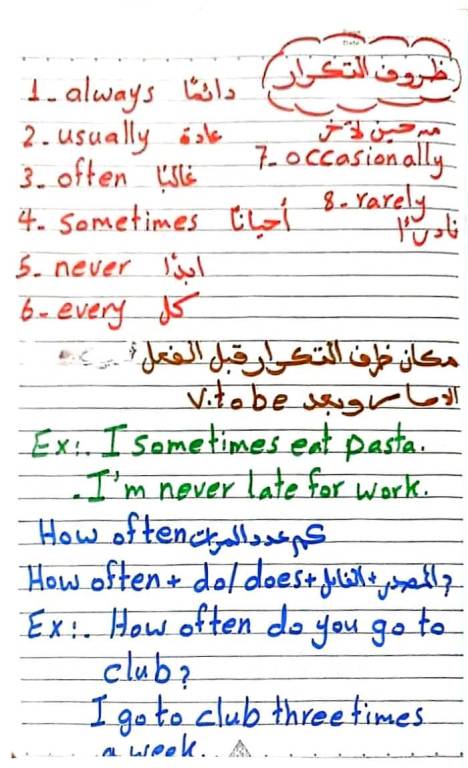 ظروف التكرار
1- always دائمًا
2- usually عادة
3- often غالبًا
4- Sometimes أحيانًا
5- never ابدًا
6- every كل
من حين لآخر
7- occasionally
8- rarely
نادرًا
مكان ظرف التكرار قبل الفعل
الاساسى وبعد v.to be
Ex:. I sometimes eat pasta.
. I'm never late for work.
How often كم عدد المرات
How often + do/does + الفاعل + المصدر?
Ex:. How often do you go to
club?
I go to club three times
a week.